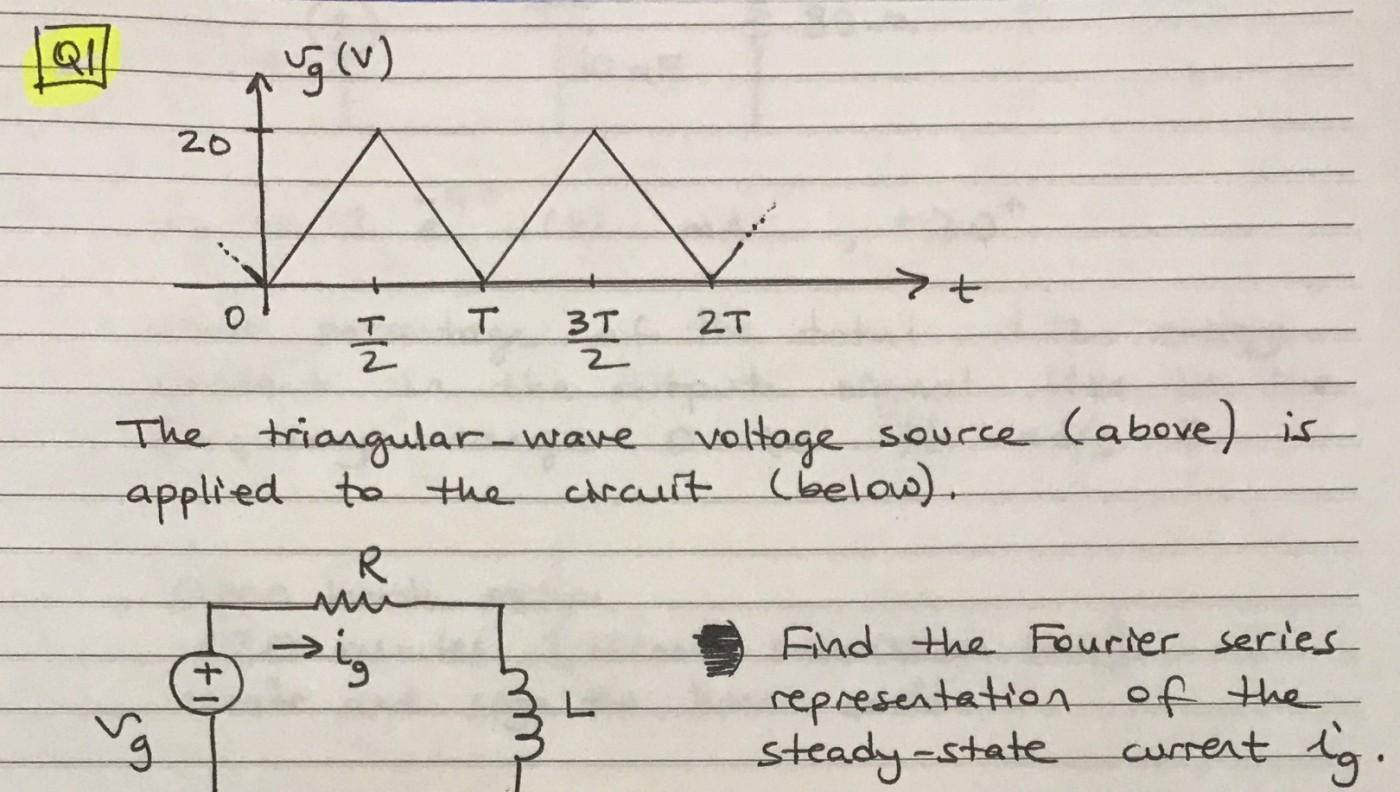 Q1
vg (V)
20
0 T/2 T 3T/2 2T t
The triangular-wave voltage source (above) is
applied to the circuit (below).
R
ig
+
-
vg
L
Find the Fourier series
representation of the
steady-state current ig.